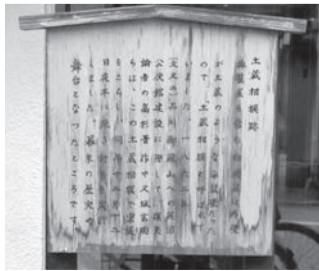 土蔵相模跡
が土蔵のような海鼠壁だった
ので、「土蔵相模」と呼ばれて
いました。一八六二年
(文久二)品川御殿山への英国
公使館建設に際して、攘夷
論者の高杉晋作や久坂玄瑞
らは、この土蔵相模で密議
をこらし、同年十二月十二
日夜半に焼き討ちを実行
しました。幕末の歴史の
舞台となったところです。